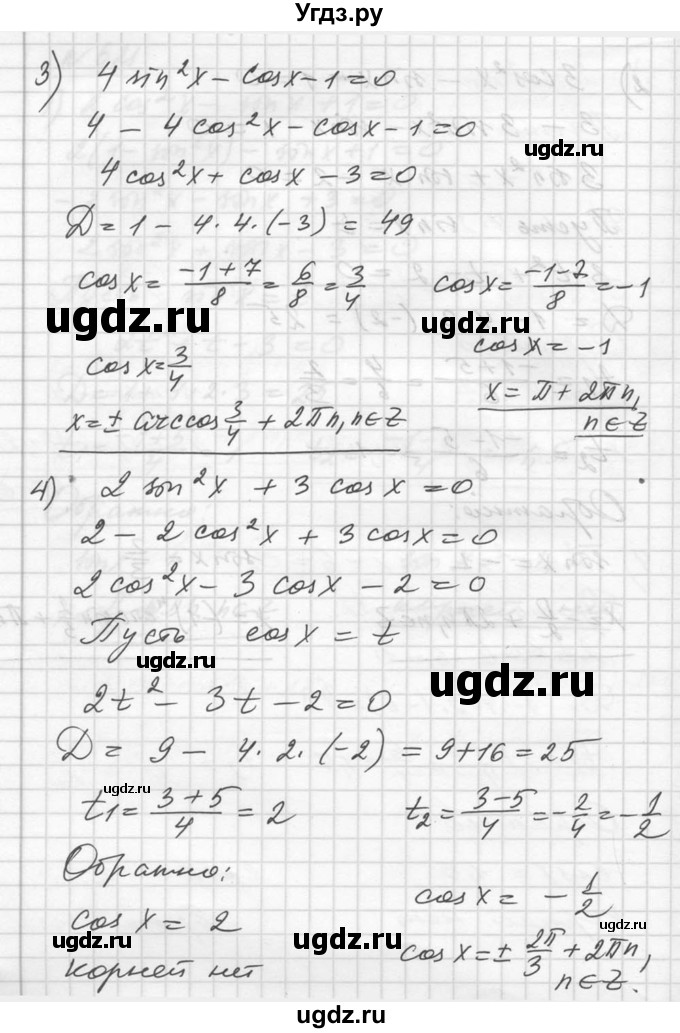 Угдз.ру
3) 4 sin²x - cosx - 1 = 0
4 - 4cos²x - cosx - 1 = 0
ugdz.ru
4cos²x + cosx - 3 = 0
D = 1 - 4·4·(-3) = 49
cosx = (-1+7)/8 = 6/8 = 3/4 cosx = (-1-7)/8 = -1
ugdz.ru ugdz.ru
cosx = 3/4 cosx = -1
x = ± arccos 3/4 + 2πn, n∈Z x = π + 2πn,
n∈Z
ugdz.ru ugdz.ru
4) 2 sin²x + 3 cosx = 0
2 - 2 cos²x + 3 cosx = 0
2 cos²x - 3 cosx - 2 = 0
Пусть cosx = t
ugdz.ru
ugdz.ru
2t² - 3t - 2 = 0
D = 9 - 4·2·(-2) = 9+16 = 25
ugdz.ru
t₁ = (3+5)/4 = 2 t₂ = (3-5)/4 = -2/4 = -1/2
ugdz.ru
Обратно:
cosx = -1/2
cosx = 2
ugdz.ru
cosx = ± 2π/3 + 2πn,
корней нет
n∈Z.
ugdz.ru
ugdz.ru